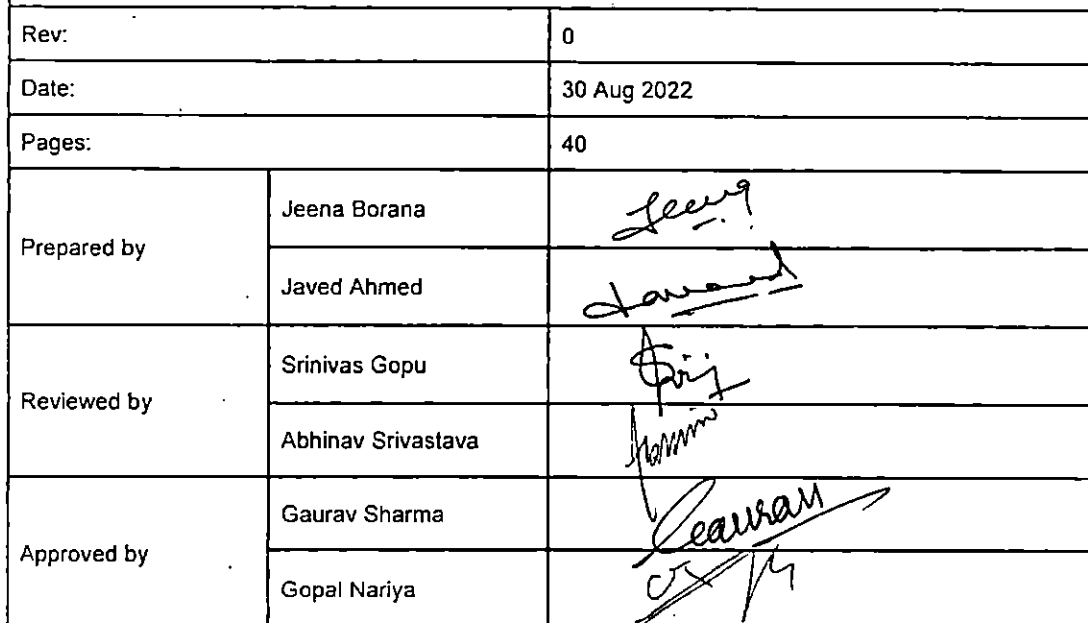 Rev: 0
Date: 30 Aug 2022
Pages: 40
Prepared by
Jeena Borana Jeena
Javed Ahmed
Reviewed by
Srinivas Gopu
Abhinav Srivastava
Approved by
Gaurav Sharma Gaurav
Gopal Nariya